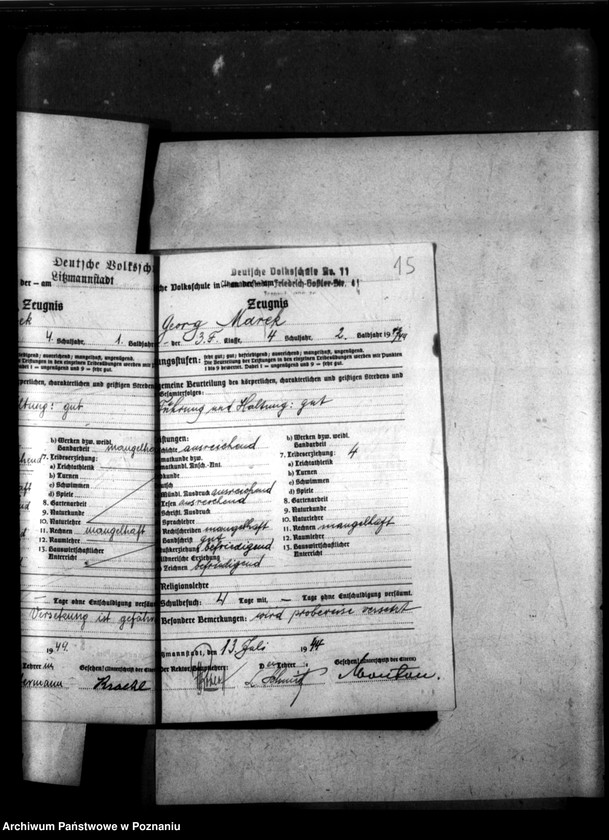 Deutsche Volksschu
der – am Litzmannstadt
Zeugnis
4. Schuljahr, 1. Halbjahr
gut
b) Werken bzw. weibl. Handarbeit mangelha
7. Leibeserziehung:
a) Leichtathletik
b) Turnen
c) Schwimmen
d) Spiele
8. Gartenarbeit
9. Naturkunde
10. Naturlehre
11. Rechnen mangelhaft
12. Raumlehre
13. Hauswirtschaftlicher Unterricht
– Tage ohne Entschuldigung versäum
Versetzung ist gefähr
Gesehen! (Unterschrift der Eltern)
15
Deutsche Volksschule No. 11
che Volksschule in Friedrich-Goßler-Str. 41
Zeugnis
Georg Marek
der 3. F. Klasse, 4 Schuljahr, 2. Halbjahr 19
ungsstufen: sehr gut; gut; befriedigend; ausreichend; mangelhaft, ungenügend.
Die Bewertung der Leistungen in den einzelnen Leibesübungen werden mit Punkten
1 bis 9 bewertet. Dabei 1 – ungenügend und 9 – sehr gut.
gemeine Beurteilung des körperlichen, charakterlichen und geistigen Strebens und
Gesamterfolges:
Führung und Haltung: gut
istungen:
schichte ausreichend
matkunde bzw.
matkundl. Ansch.-Unt.
kunde
utsch
Mündl. Ausdruck ausreichend
Lesen ausreichend
Schriftl. Ausdruck
Sprachlehre
Rechtschreiben mangelhaft
Handschrift gut
usikerziehung befriedigend
ldnerische Erziehung
a) Zeichnen befriedigend
b) Werken bzw. weibl. Handarbeit
7. Leibeserziehung: 4
a) Leichtathletik
b) Turnen
c) Schwimmen
d) Spiele
8. Gartenarbeit
9. Naturkunde
10. Naturlehre
11. Rechnen mangelhaft
12. Raumlehre
13. Hauswirtschaftlicher Unterricht
Religionslehre
Schulbesuch: 4 Tage mit, – Tage ohne Entschuldigung versäumt.
Besondere Bemerkungen: wird probeweise versetzt
tzmannstadt, den 13. Juli 1944
Gesehen! (Unterschrift der Eltern)
Archiwum Państwowe w Poznaniu